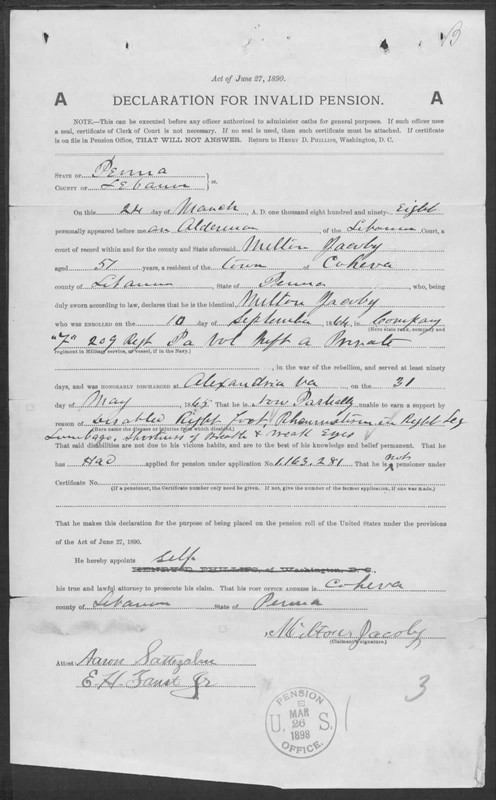 B
Act of June 27, 1890.
A DECLARATION FOR INVALID PENSION. A
NOTE.—This can be executed before any officer authorized to administer oaths for general purposes. If such officer uses
a seal, certificate of Clerk of Court is not necessary. If no seal is used, then such certificate must be attached. If certificate
is on file in Pension Office, THAT WILL NOT ANSWER. Return to HENRY D. PHILLIPS, Washington, D. C.
STATE OF Penna
COUNTY OF Lebanon } ss.
On this 24 day of March, A. D. one thousand eight hundred and ninety- Eight
personally appeared before me an Alderman of the Lebanon Court, a
court of record within and for the county and State aforesaid Milton Jacoby
aged 51 years, a resident of the town of Coheva
county of Lebanon, State of Penna who, being
duly sworn according to law, declares that he is the identical Milton Jacoby
who was ENROLLED on the 10 day of September, 1864, in Company
(Here state rank, company and
"F" 209 Regt Pa Vol Inft a Private
regiment in Military service, or vessel, if in the Navy.)
, in the war of the rebellion, and served at least ninety
days, and was HONORABLY DISCHARGED at Alexandria Va on the 31
day of May, 1865 That he is Now Partially unable to earn a support by
reason of Disabled Right Foot, Rheumatism in Right Leg
(Here name the disease or injuries from which disabled.)
Lumbago, shortness of Breath & Weak Eyes
That said disabilities are not due to his vicious habits, and are to the best of his knowledge and belief permanent. That he
has Had applied for pension under application No. 1.163.281 That he is not a pensioner under
Certificate No.
(If a pensioner, the Certificate number only need be given. If not, give the number of the former application, if one was made.)
That he makes this declaration for the purpose of being placed on the pension roll of the United States under the provisions
of the Act of June 27, 1890.
He hereby appoints Self
HENRY D. PHILLIPS, of Washington, D. C.
his true and lawful attorney to prosecute his claim. That his POST OFFICE ADDRESS is Coheva
county of Lebanon State of Penna
Milton Jacoby
(Claimant's signature.)
Attest Aaron Sattazahn
E. H. Faust Jr
3
PENSION
MAR
U. 26 S.
1898
OFFICE.